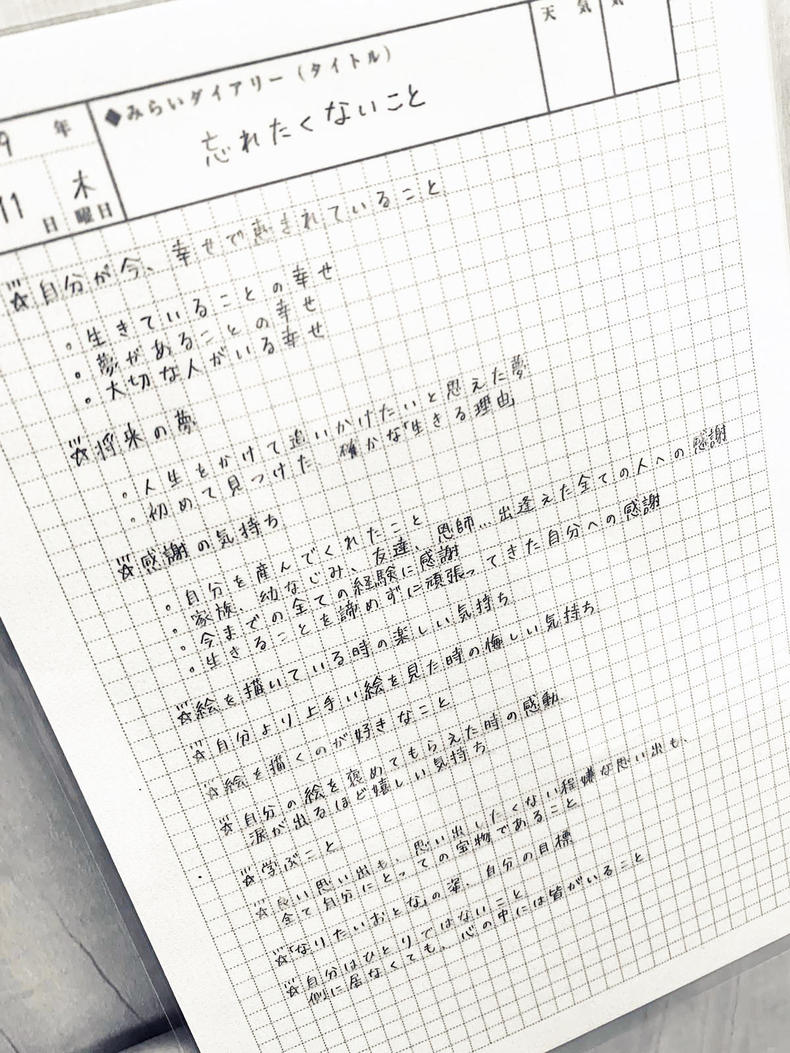 天 気
◆みらいダイアリー(タイトル)
9 年
忘れたくないこと
11 日 木 曜日
☆自分が今、幸せで恵まれていること
・生きていることの幸せ
・夢があることの幸せ
・大切な人がいる幸せ
☆将来の夢
・人生をかけて追いかけたいと思えた夢
・初めて見つけた 確かな「生きる理由」
☆感謝の気持ち
・自分を産んでくれたこと
・家族、幼なじみ、友達、恩師…出逢えた全ての人への感謝
・今までの全ての経験に感謝
・生きることを諦めずに頑張ってきた自分への感謝
☆絵を描いている時の楽しい気持ち
☆自分より上手い絵を見た時の悔しい気持ち
☆絵を描くのが好きなこと
☆自分の絵を褒めてもらえた時の感動
涙が出るほど嬉しい気持ち
☆学ぶこと
☆良い思い出も、思い出したくない程嫌な思い出も、
全て自分にとっての宝物であること
☆「なりたいおとな」の姿、自分の目標
☆自分はひとりではないこと
側に居なくても、心の中には皆がいること